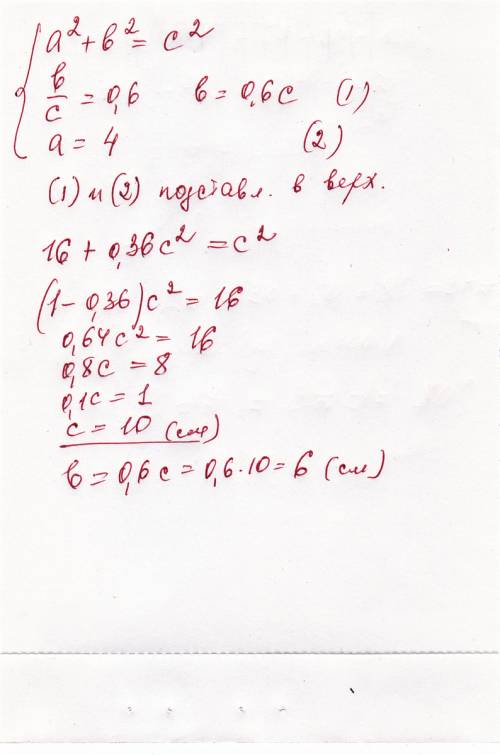 a² + в² = c²
в/c = 0,6 в = 0,6c (1)
a = 4 (2)
(1) и (2) подставл. в верх.
16 + 0,36c² = c²
(1 - 0,36)c² = 16
0,64c² = 16
0,8c = 8
0,1c = 1
c = 10 (см)
в = 0,6c = 0,6·10 = 6 (см)